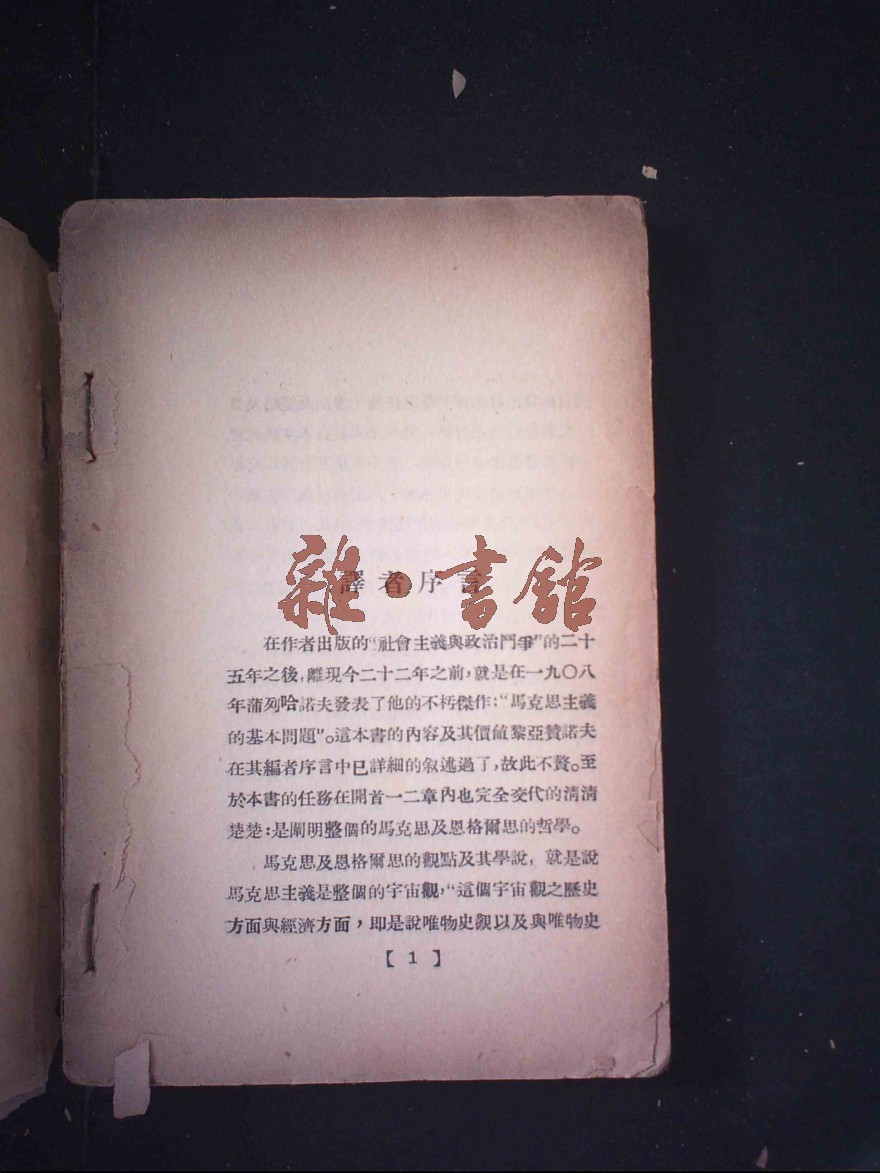 雜·書館
譯者序言
在作者出版的“社會主義與政治鬥爭”的二十
五年之後，離現今二十二年之前，就是在一九〇八
年蒲列哈諾夫發表了他的不朽傑作：“馬克思主義
的基本問題”。這本書的內容及其價値黎亞贊諾夫
在其編者序言中已詳細的叙述過了，故此不贅。至
於本書的任務在開首一二章內也完全交代的淸淸
楚楚：是闡明整個的馬克思及恩格爾思的哲學。
馬克思及恩格爾思的觀點及其學說，就是說
馬克思主義是整個的宇宙觀，“這個宇宙觀之歷史
方面與經濟方面，即是說唯物史觀以及與唯物史
【1】